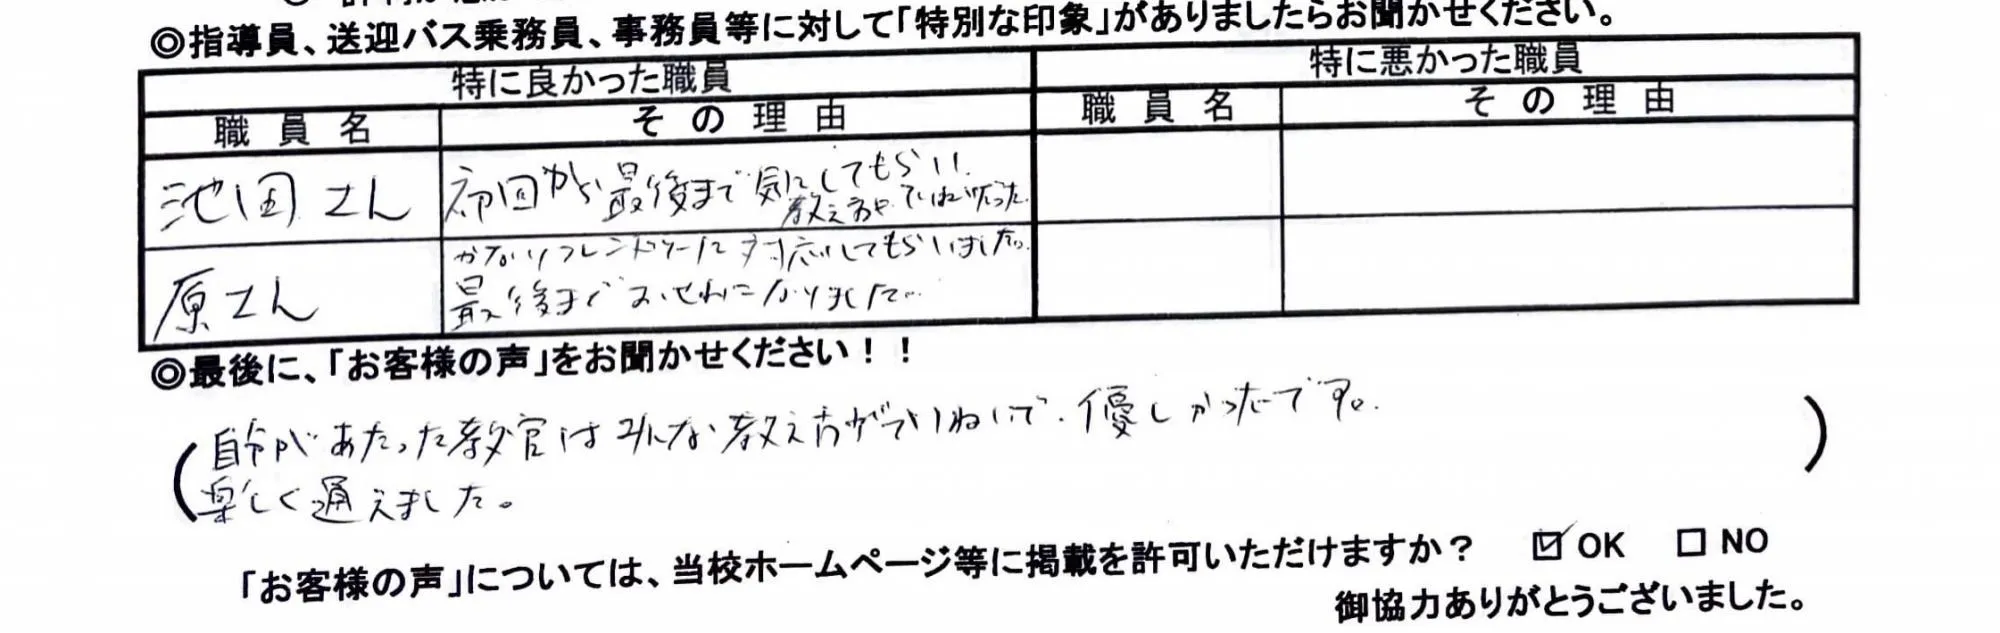 ◎指導員、送迎バス乗務員、事務員等に対して「特別な印象」がありましたらお聞かせください。
特に良かった職員
特に悪かった職員
職員名
その理由
職員名
その理由
池田さん
初回から最後まで気にしてもらい、
教え方もていねいだった。
原さん
かなりフレンドリーに対応してもらいました。
最後までおせわになりました。
◎最後に、「お客様の声」をお聞かせください！！
(自分があたった教官はみんな教え方がていねいで、優しかったです。
楽しく通えました。)
「お客様の声」については、当校ホームページ等に掲載を許可いただけますか？ ☑OK □NO
御協力ありがとうございました。